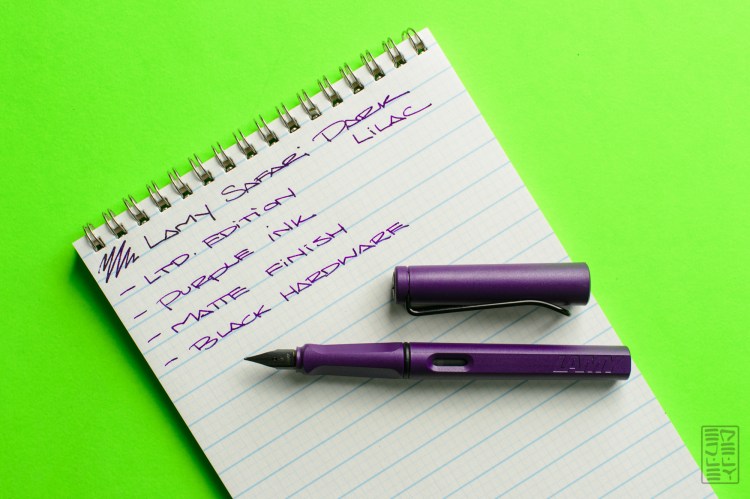 LAMY SAFARI DARK
LILAC
- LTD. EDITION
- PURPLE INK
- MATTE FINISH
- BLACK HARDWARE
LAMY